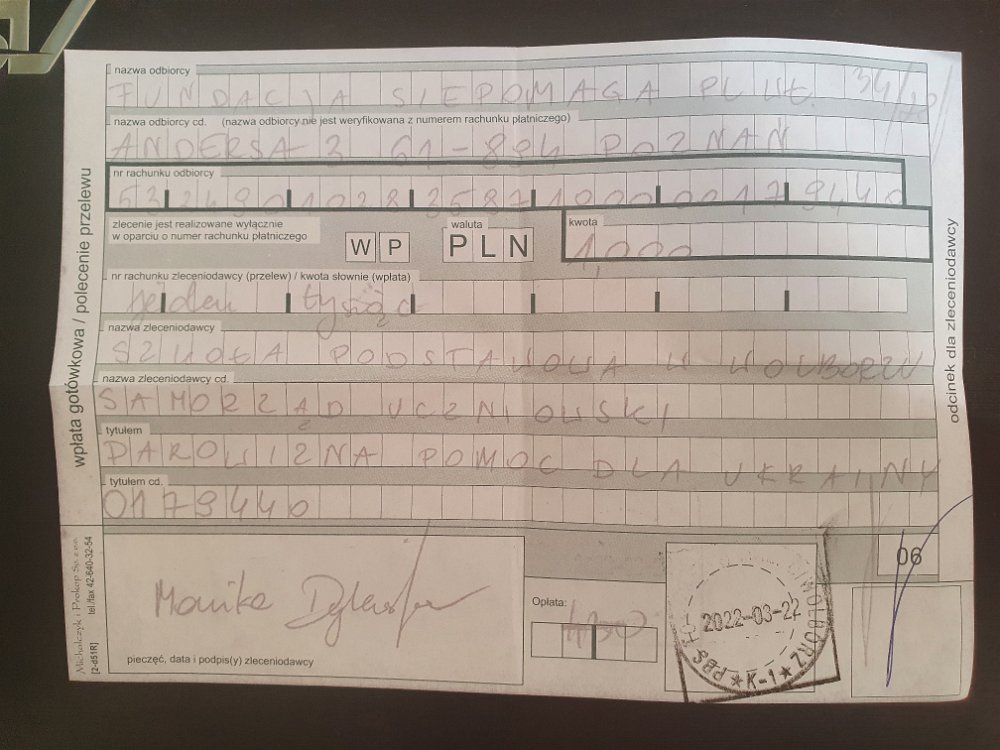 nazwa odbiorcy
FUNDACJA SIEPOMAGA PL WŁ.
nazwa odbiorcy cd. (nazwa odbiorcy nie jest weryfikowana z numerem rachunku płatniczego)
ANDERSA 3 61-894 POZNAŃ
nr rachunku odbiorcy
53 2490 1028 3587 1000 0017 9440
zlecenie jest realizowane wyłącznie
w oparciu o numer rachunku płatniczego
WP
waluta
PLN
kwota
1,000
nr rachunku zleceniodawcy (przelew) / kwota słownie (wpłata)
jeden tysiąc
nazwa zleceniodawcy
SZKOŁA PODSTAWOWA W WOLBORZU
nazwa zleceniodawcy cd.
SAMORZĄD UCZNIOWSKI
tytułem
DAROWIZNA POMOC DLA UKRAINY
tytułem cd.
0179440
06
Monika
pieczęć, data i podpis(y) zleceniodawcy
Opłata:
PBS
WOLBÓRZ
2022-03-22
*K-1*
wpłata gotówkowa / polecenie przelewu
odcinek dla zleceniodawcy
Michalczyk i Prokop Sp. z o.o.
tel./fax 42-640-32-54
[2-d51R]